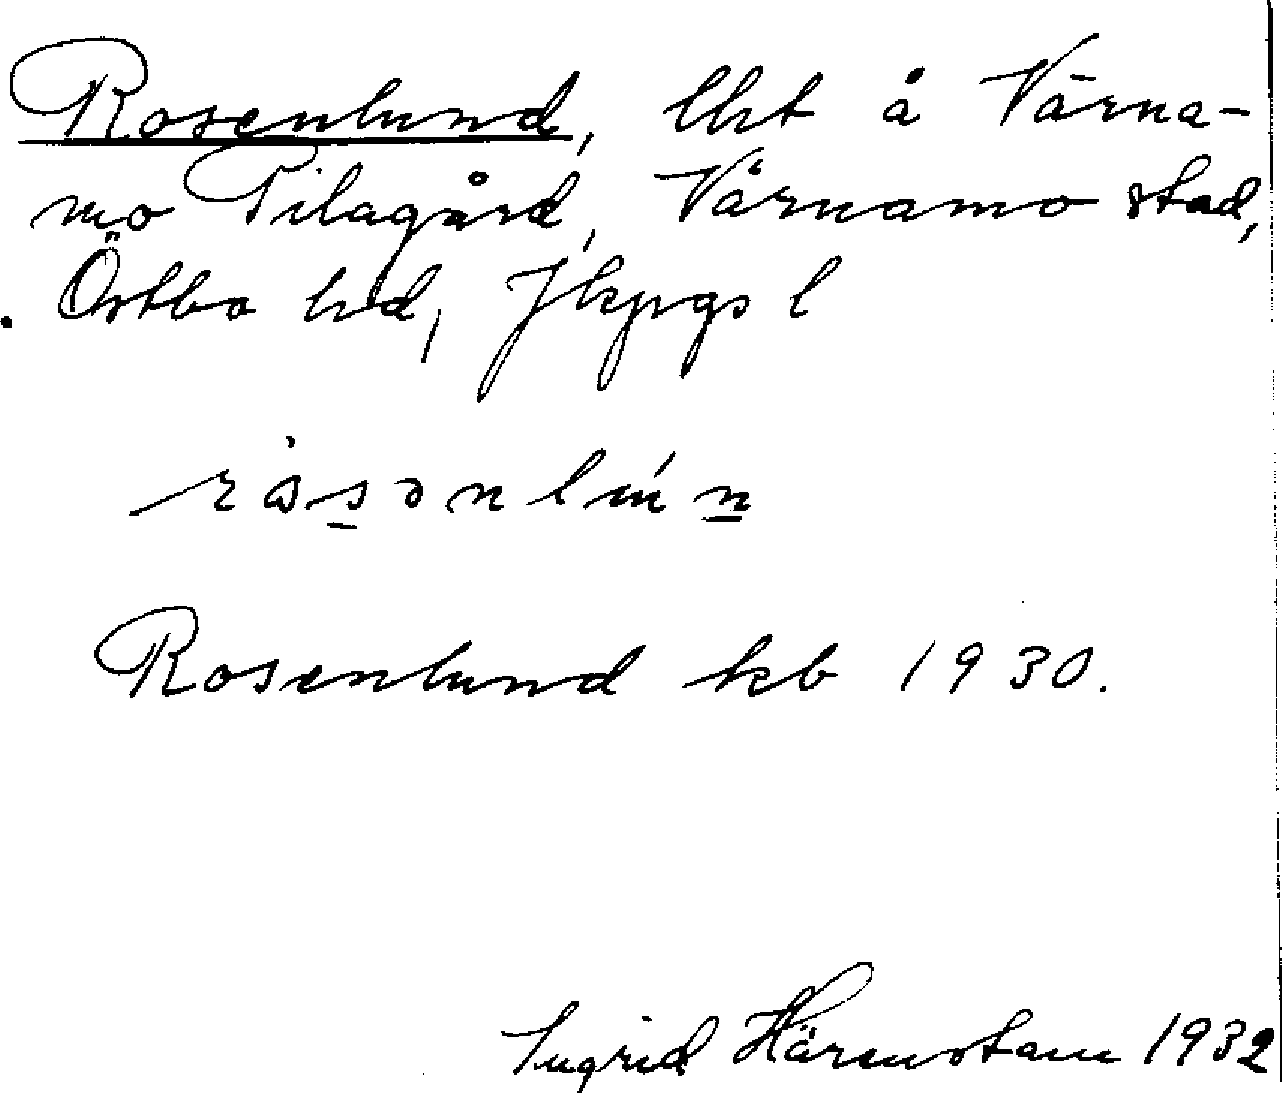 Rosenlund, lht å Värna-
mo Pilagård, Värnamo stad,
Östbo hd, Jkpgs l
Rosenlund kb 1930.
Ingrid Härenstam 1932